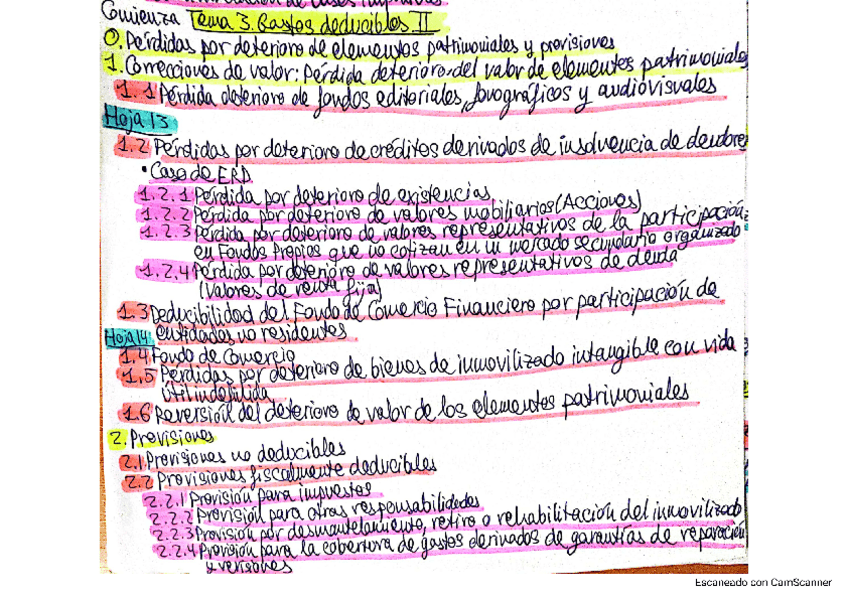 Comienza Tema 3. Gastos deducibles II
0. Pérdidas por deterioro de elementos patrimoniales y provisiones
1. Correcciones de valor: Pérdida deterioro del valor de elementos patrimoniales
1.1 Pérdida deterioro de fondos editoriales, fonográficos y audiovisuales
Hoja 13
1.2 Pérdidas por deterioro de créditos derivados de insolvencia de deudores
• Caso de ERD
1.2.1 Pérdida por deterioro de existencias
1.2.2 Pérdida por deterioro de valores mobiliarios (Acciones)
1.2.3 Pérdida por deterioro de valores representativos de la participación
en Fondos Propios que no cotizan en un mercado secundario organizado
1.2.4 Pérdida por deterioro de valores representativos de deuda
(Valores de renta fija)
1.3 Deducibilidad del Fondo de Comercio Financiero por participación de
entidades no residentes
Hoja 14
1.4 Fondo de Comercio
1.5 Pérdidas por deterioro de bienes de inmovilizado intangible con vida
útil indefinida
1.6 Reversión del deterioro de valor de los elementos patrimoniales
2. Provisiones
2.1 Provisiones no deducibles
2.2 Provisiones fiscalmente deducibles
2.2.1 Provisión para impuestos
2.2.2 Provisión para otras responsabilidades
2.2.3 Provisión por desmantelamiento, retiro o rehabilitación del inmovilizado
2.2.4 Provisión para la cobertura de gastos derivados de garantías de reparación
y revisiones
Escaneado con CamScanner